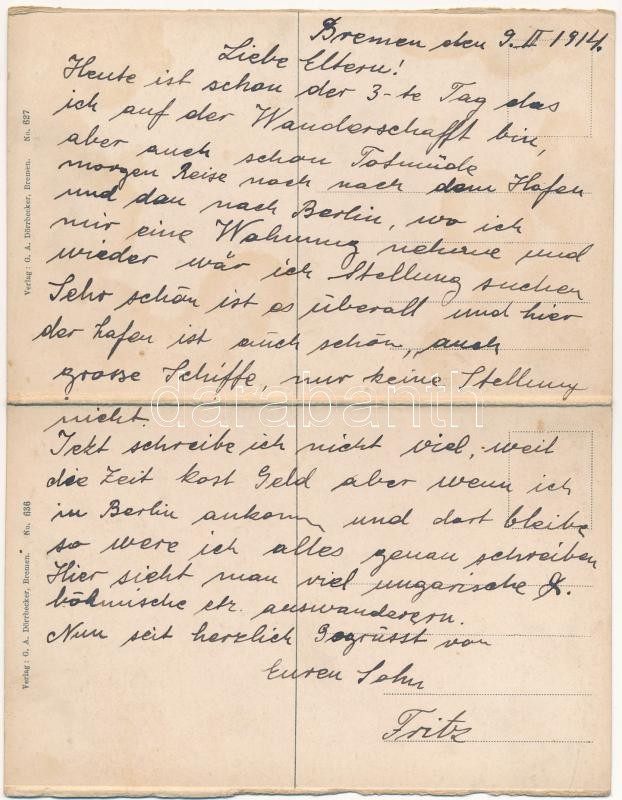 Bremen den 9. II 1914.
Liebe Eltern!
Heute ist schon der 3-te Tag das
ich auf der Wanderschafft bin,
aber auch schon Totmüde
morgen Reise noch nach dem Hafen
und dan nach Berlin, wo ich
mir eine Wohnung nehme und
wieder wär ich Stellung suchen
Sehr schön ist es überall und hier
der hafen ist auch schön, auch
grosse Schiffe, nur keine Stellung
nicht.
Jezt schreibe ich nicht viel, weil
die Zeit kost Geld aber wenn ich
in Berlin ankom und dort bleibe
so were ich alles genau schreiben
Hier sieht man viel ungarische &.
böhmische etr. auswanderern.
Nun seit herzlich Gegrüsst von
Euren Sohn
Fritz
Verlag: G. A. Dörrbecker, Bremen. No. 627
Verlag: G. A. Dörrbecker, Bremen. No. 636
darabanth